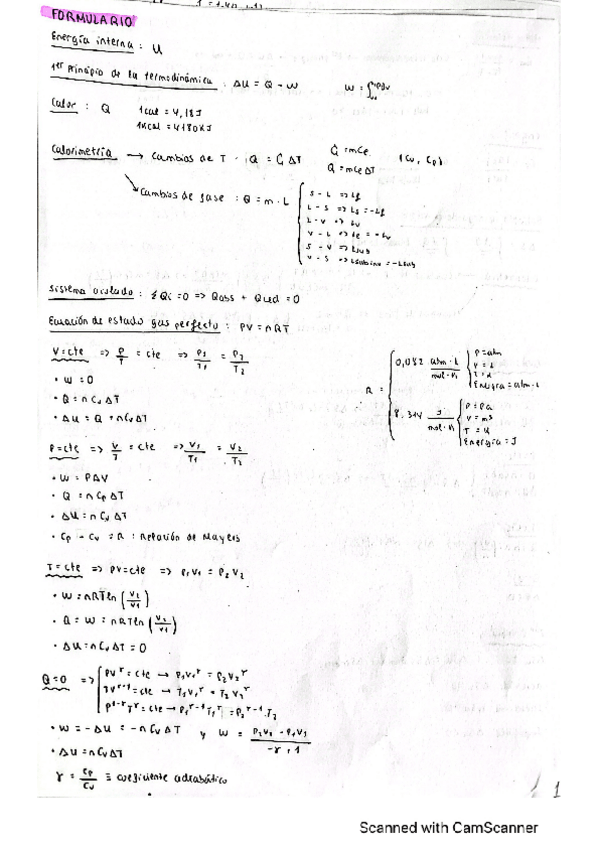 FORMULARIO
Energía interna : U
1er Principio de la termodinámica : ΔU = Q - W
W = ∫PdV
Calor : Q 1cal = 4,18J
1Kcal = 4180KJ
Calorimetría → Cambios de T : Q = C ΔT
C = mCe
Q = mCeΔT
(Cv, Cp)
Cambios de fase : Q = m · L
S - L => Lf
L - S => Ls = -Lf
L - V => Lv
V - L => Lc = -Lv
S - V => Lsub
V - S => = -Lsub
Sistema aislado : ΣQi = 0 => Qabs + Qced = 0
Ecuación de estado gas perfecto : PV = nRT
V = cte => P/T = cte => P1/T1 = P2/T2
• W = 0
• Q = n Cv ΔT
• ΔU = Q = nCvΔT
R =
0,082 atm · L / mol · K
P = atm
V = L
Energía = atm · L
8,314 J / mol · K
P = Pa
V = m³
T = K
Energía = J
P = cte => V/T = cte => V1/T1 = V2/T2
• W = PΔV
• Q = n Cp ΔT
• ΔU = n Cv ΔT
• Cp - Cv = R : Relación de Mayers
T = cte => PV = cte => P1V1 = P2V2
• W = nRT ln (V2/V1)
• Q = W = nRT ln (V2/V1)
• ΔU = n Cv ΔT = 0
Q = 0 =>
PV^γ = cte → P1V1^γ = P2V2^γ
TV^γ-1 = cte →
P^1-γ T^γ = cte →
• W = -ΔU = -n Cv ΔT y W = P2V2 - P1V1 / -γ + 1
• ΔU = nCvΔT
γ = Cp/Cv ≡ coeficiente adiabático
1
Scanned with CamScanner